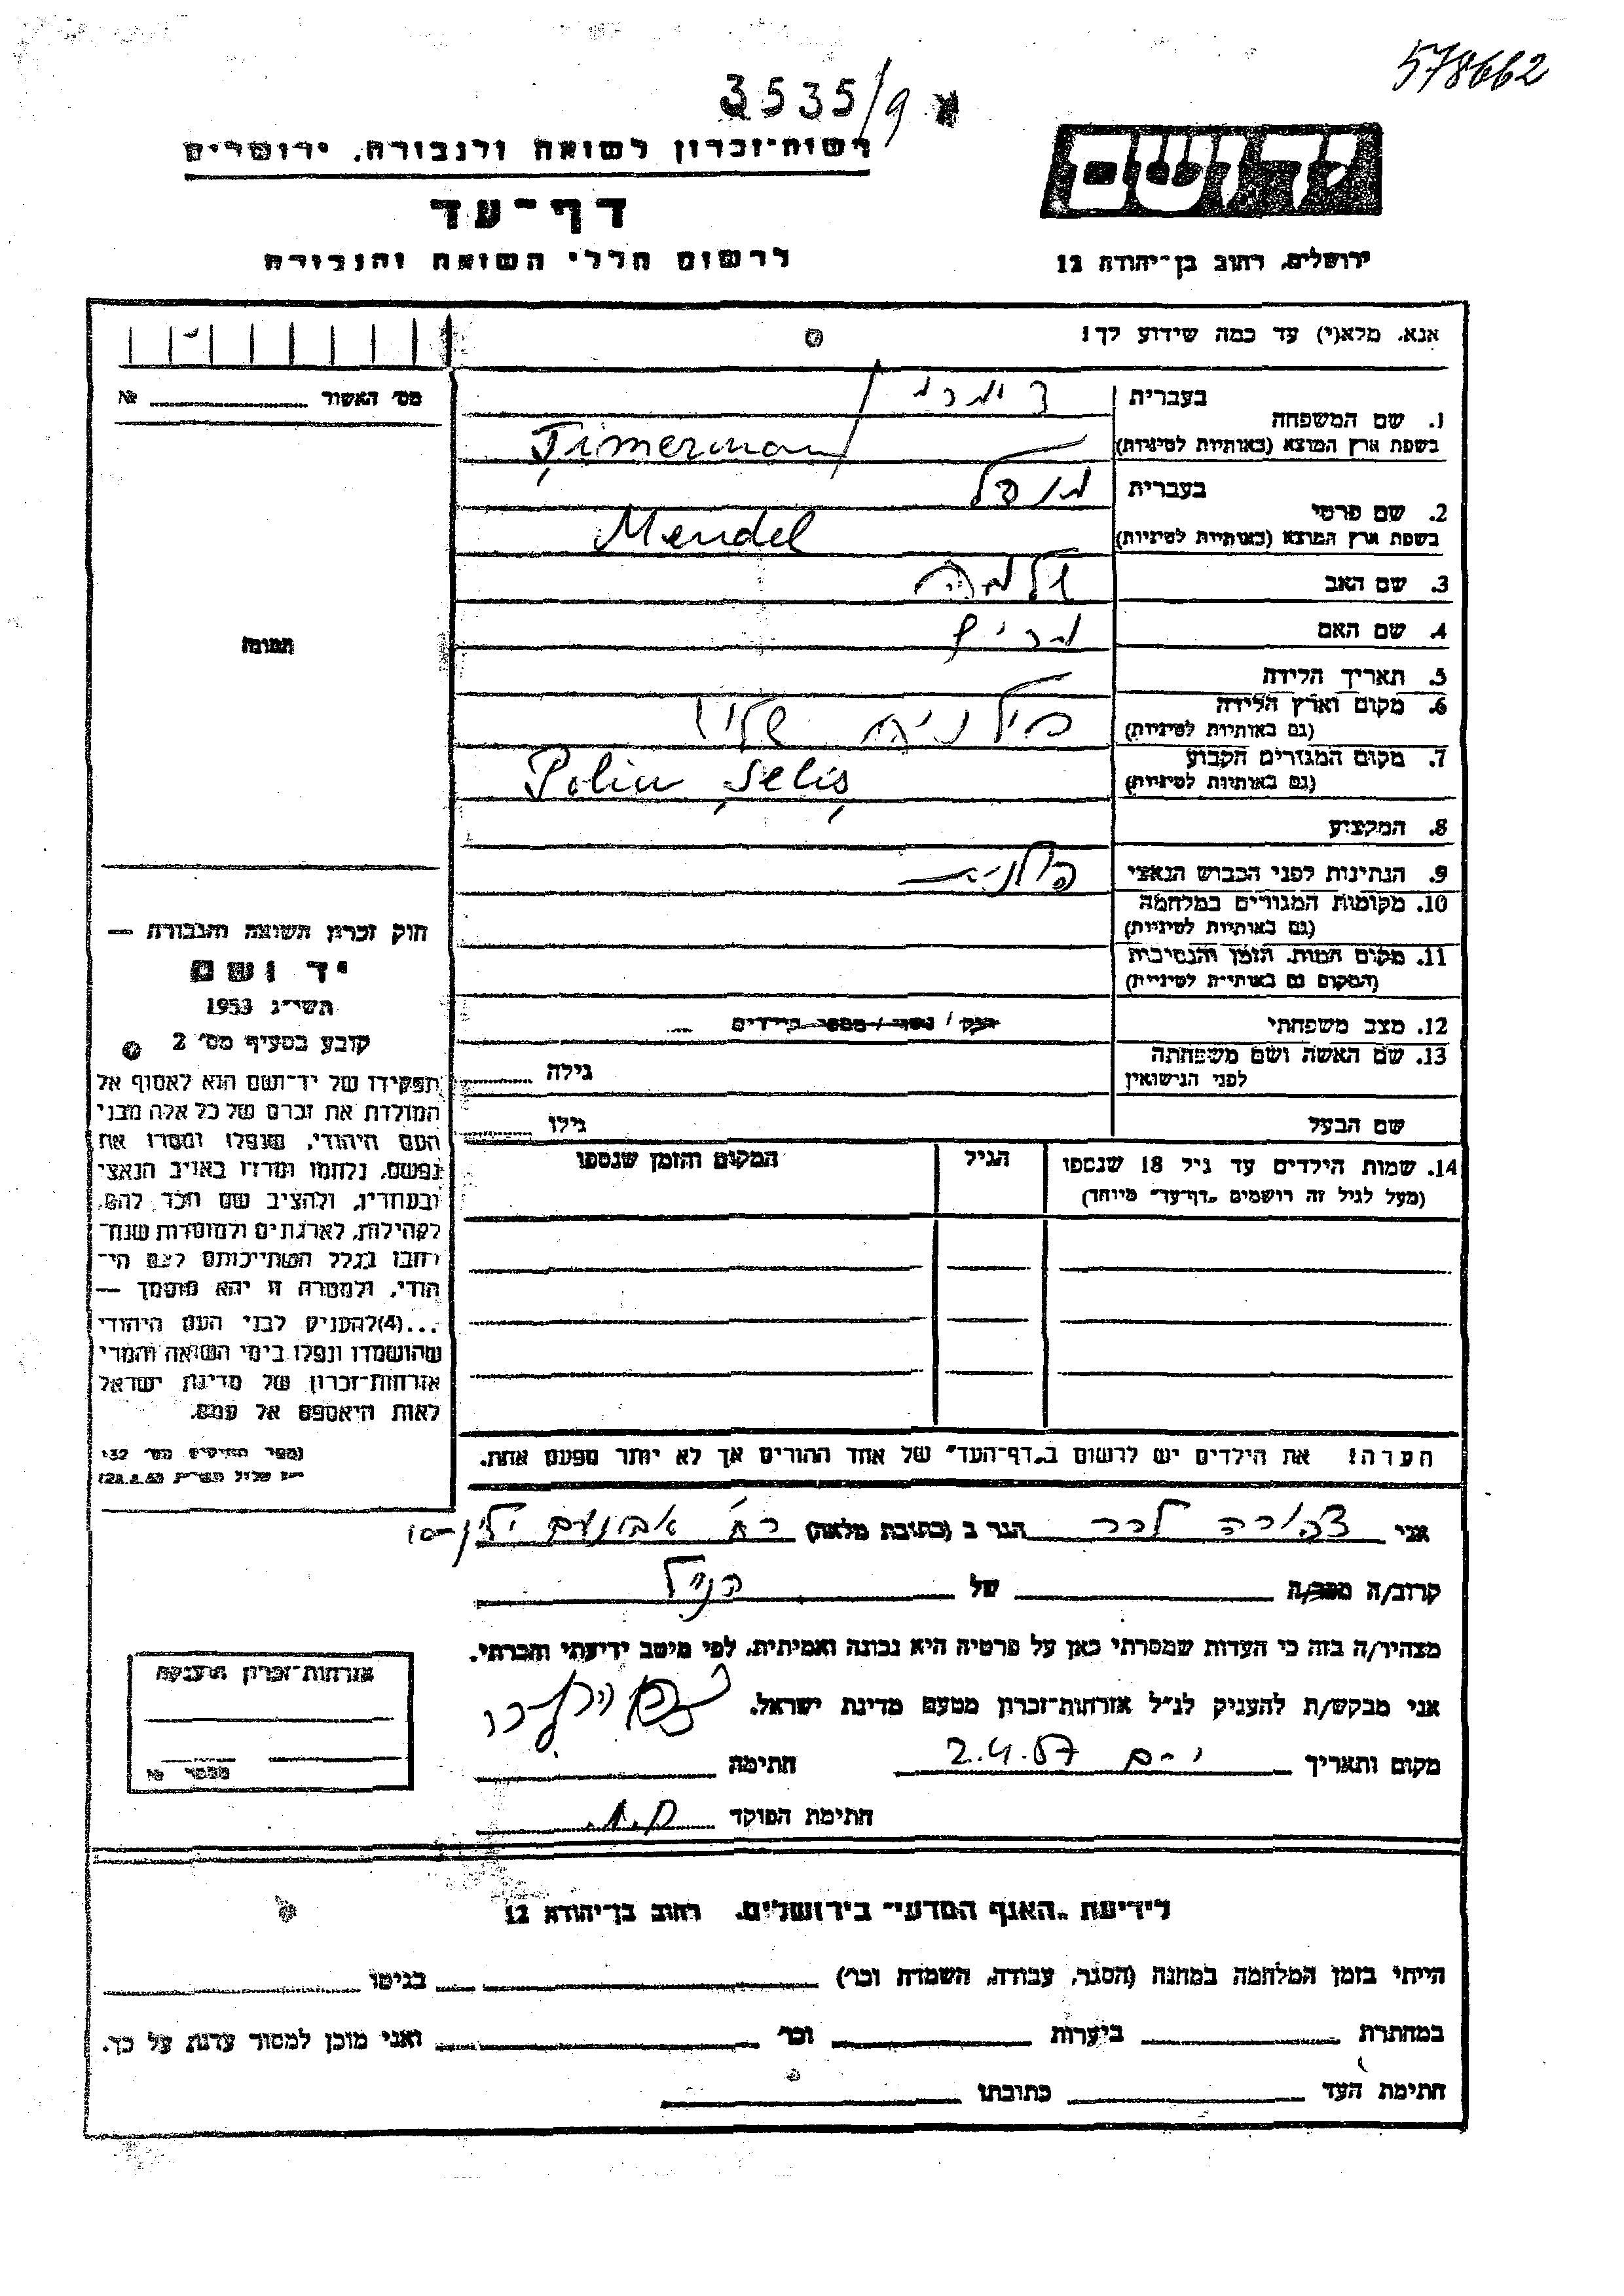 578662
3535/9 א
רשות-זכרון לשואה ולגבורה, ירושלים
דף-עד
לרשום חללי השואה והגבורה
ידושם
ירושלים, רחוב בן-יהודה 12
אנא, מלא(י) עד כמה שידוע לך!
מס' האשור № 
1. שם המשפחה
בעברית
בשפת ארץ המוצא (באותיות לטיניות) Timerman
2. שם פרטי
בעברית מנדל
בשפת ארץ המוצא (באותיות לטיניות) Mendel
3. שם האב שלמה
4. שם האם
5. תאריך הלידה
6. מקום וארץ הלידה
(גם באותיות לטיניות)
7. מקום המגורים הקבוע
(גם באותיות לטיניות) Polin Seliş
8. המקצוע
9. הנתינות לפני הכבוש הנאצי
10. מקומות המגורים במלחמה
(גם באותיות לטיניות)
11. מקום המות, הזמן והנסיבות
(המקום גם באותיות לטיניות)
12. מצב משפחתי
13. שם האשה ושם משפחתה
לפני הנישואין
גילה
שם הבעל
גילו
14. שמות הילדים עד גיל 18 שנספו
(מעל לגיל זה רושמים "דף-עד" מיוחד)
הגיל
המקום והזמן שנספו
הערה: את הילדים יש לרשום ב"דף-העד" של אחד ההורים אך לא יותר מפעם אחת.
תמונה
חוק זכרון השואה והגבורה —
יד ושם
תשי"ג 1953
קובע בסעיף מס' 2
תפקידו של יד-ושם הוא לאסוף אל
המולדת את זכרם של כל אלה מבני
העם היהודי, שנפלו ומסרו את
נפשם, נלחמו ומרדו באויב הנאצי
ובעוזריו, ולהציב שם וזכר להם,
לקהילות, לארגונים ולמוסדות שנח־
רבו בגלל השתייכותם לעם הי־
הודי, ולמטרה זו יהא מוסמך —
...(4) להעניק לבני העם היהודי
שהושמדו ונפלו בימי השואה והמרי
אזרחות-זכרון של מדינת ישראל
לאות היאספם אל עמם.
אני הגר ב (כתובת מלאה) רח' אבינועם ילין 10
קרוב/ה מכר/ה של הנ"ל
מצהיר/ה בזה כי העדות שמסרתי כאן על פרטיה היא נכונה ואמיתית, לפי מיטב ידיעתי והכרתי.
אני מבקש/ת להעניק לנ"ל אזרחות-זכרון מטעם מדינת ישראל.
מקום ותאריך י-ם 2.4.57 חתימה
חתימת הפוקד
אזרחות-זכרון הוענקה
מספר №
לידיעת "האגף המדעי" בירושלים, רחוב בן-יהודה 12
הייתי בזמן המלחמה במחנה (הסגר, עבודה, השמדה וכו') בגיטו
במחתרת ביערות וכו' ואני מוכן למסור עדות על כך.
חתימת העד כתובתו